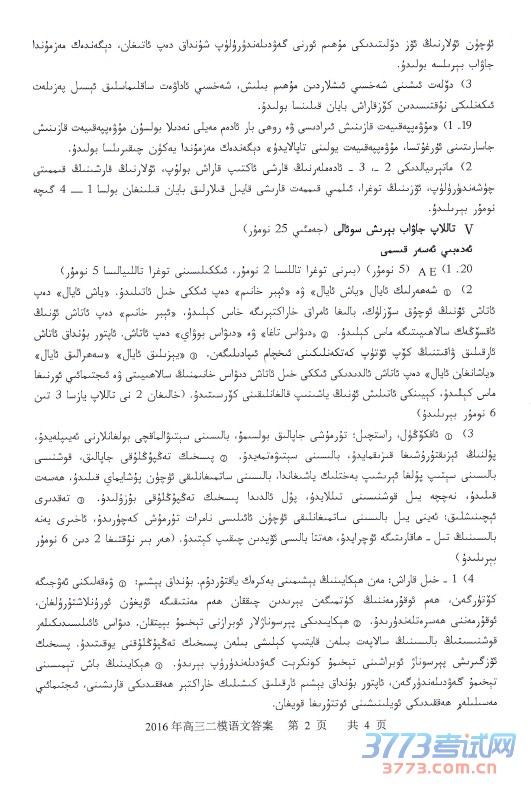 ئۈچۈن ئۇلارنىڭ ئۆز دۆلىتىدىكى مۇھىم ئورنى گەۋدىلەندۈرۈلۈپ شۇنداق دەپ ئاتىغان، دېگەندەك مەزمۇندا
جاۋاب بېرىلسە بولىدۇ.
3) دۆلەت ئىشىنى شەخسىي ئىشلاردىن مۇھىم بىلىش، شەخسىي ئاداۋەت ساقلىماسلىق ئېسىل پەزىلەت
ئىكەنلىكى نۇقتىسىدىن كۆزقاراش بايان قىلىنسا بولىدۇ.
19. 1) «مۇۋەپپەقىيەت قازىنىش ئىرادىسى ۋە روھى بار ئادەم مەيلى نەدىلا بولسۇن مۇۋەپپەقىيەت قازىنىش
جاسارىتىنى ئۇرغۇتسا، مۇۋەپپەقىيەت يولىنى تاپالايدۇ» دېگەندەك مەزمۇندا يەكۈن چىقىرىلسا بولىدۇ.
2) ماتېرىيالدىكى 2 -، 3 - ئادەملەرنىڭ قارشى ئاكتىپ قاراش بولۇپ، ئۇلارنىڭ قارشىنىڭ قىممىتى
چۈشەندۈرۈلۈپ، ئۆزىنىڭ توغرا، ئىلمىي قىممەت قارىشى قايىل قىلارلىق بايان قىلىنغان بولسا 1 — 4 گىچە
نومۇر بېرىلىدۇ.
V تاللاپ جاۋاب بېرىش سوئالى (جەمئىي 25 نومۇر)
ئەدەبىي ئەسەر قىسمى
20. 1) A E (5 نومۇر) (بىرنى توغرا تاللىسا 2 نومۇر، ئىككىلىسىنى توغرا تاللىيالىسا 5 نومۇر)
2) ① شەھەرلىك ئايال «ياش ئايال» ۋە «ئېبىر خانىم» دەپ ئىككى خىل ئاتىلىدۇ. «ياش ئايال» دەپ
ئاتاش ئۇنىڭ ئوچۇق سۆزلۈك، بالىغا ئامراق خاراكتېرىگە خاس كېلىدۇ، «ئېبىر خانىم» دەپ ئاتاش ئۇنىڭ
ئاقسۆڭەك سالاھىيىتىگە ماس كېلىدۇ. ② «دىۋاس تاغا» ۋە «دىۋاس بوۋاي» دەپ ئاتاش. ئاپتور بۇنداق ئاتاش
ئارقىلىق ۋاقىتنىڭ كۆپ ئۆتۈپ كەتكەنلىكىنى ئىخچام ئىپادىلىگەن. ③ «يېزىلىق ئايال» «سەھرالىق ئايال»
«ياشانغان ئايال» دەپ ئاتاش ئالدىدىكى ئىككى خىل ئاتاش دىۋاس خانىمنىڭ سالاھىيىتى ۋە ئىجتىمائىي ئورنىغا
ماس كېلىدۇ، كېيىنكى ئاتىلىش ئۇنىڭ ياشىنىپ قالغانلىقىنى كۆرسىتىدۇ. (خالىغان 2 نى تاللاپ يازسا 3 تىن
6 نومۇر بېرىلىدۇ)
3) ① ئاقكۆڭۈل، راستچىل: تۇرمۇشى جاپالىق بولسىمۇ، بالىسىنى سېتىۋالماقچى بولغانلارنى ئەيىپلەيدۇ،
پۇلنىڭ ئېزىقتۇرۇشىغا قىزىقمايدۇ، بالىسىنى سېتىۋەتمەيدۇ. ② پىسخىك تەڭپۇڭلۇقى جاپالىق، قوشنىسى
بالىسىنى سېتىپ پۇلغا ئېرىشىپ بەختلىك ياشىغاندا، بالىسىنى ساتمىغانلىقى ئۈچۈن پۇشايماي قىلىدۇ، ھەسەت
قىلىدۇ، نەچچە يىل قوشنىسىنى تىللايدۇ، پۇل ئالدىدا پىسخىك تەڭپۇڭلۇقى بۇزۇلىدۇ. ③ تەقدىرى
ئېچىنىشلىق: ئەينى يىل بالىسىنى ساتمىغانلىقى ئۈچۈن ئائىلىسى نامرات تۇرمۇش كەچۈرىدۇ، ئاخىرى يەنە
بالىسىنىڭ تىل - ھاقارىتىگە ئۇچرايدۇ، ھەتتا بالىسى ئۆيدىن چىقىپ كېتىدۇ. (ھەر بىر نۇقتىغا 2 دىن 6 نومۇر
بېرىلىدۇ)
4) 1 - خىل قاراش: مەن ھېكايىنىڭ يېشىمىنى بەكرەك ياقتۇردۇم. بۇنداق يېشىم: ① ۋەقەلىكنى ئەۋجىگە
كۆتۈرگەن، ھەم ئوقۇرمەننىڭ كۈتمىگەن يېرىدىن چىققان ھەم مەنتىقىگە ئۇيغۇن ئورۇنلاشتۇرۇلغان.
ئوقۇرمەننى ھەسرەتلەندۈرىدۇ. ② ھېكايىدىكى پېرسوناژلار ئوبرازىنى تېخىمۇ بېيىتقان. دىۋاس ئائىلىسىدىكىلەر
قوشنىسىنىڭ بالىسىنىڭ سالاپەت بىلەن قايتىپ كېلىشى بىلەن پىسخىك تەڭپۇڭلۇقنى يوقىتىدۇ، پىسخىك
ئۆزگىرىش پېرسوناژ ئوبرازىنى تېخىمۇ كونكرېت گەۋدىلەندۈرۈپ بېرىدۇ. ③ ھېكايىنىڭ باش تېمىسىنى
تېخىمۇ گەۋدىلەندۈرگەن، ئاپتور بۇنداق يېشىم ئارقىلىق كىشىلىك خاراكتېر ھەققىدىكى قارىشىنى، ئىجتىمائىي
مەسىلىلەر ھەققىدىكى ئويلىنىشىنى ئوتتۇرىغا قويغان.
2016 年高三二模语文答案 第 2 页 共 4 页
3773考试网
3773.com.cn